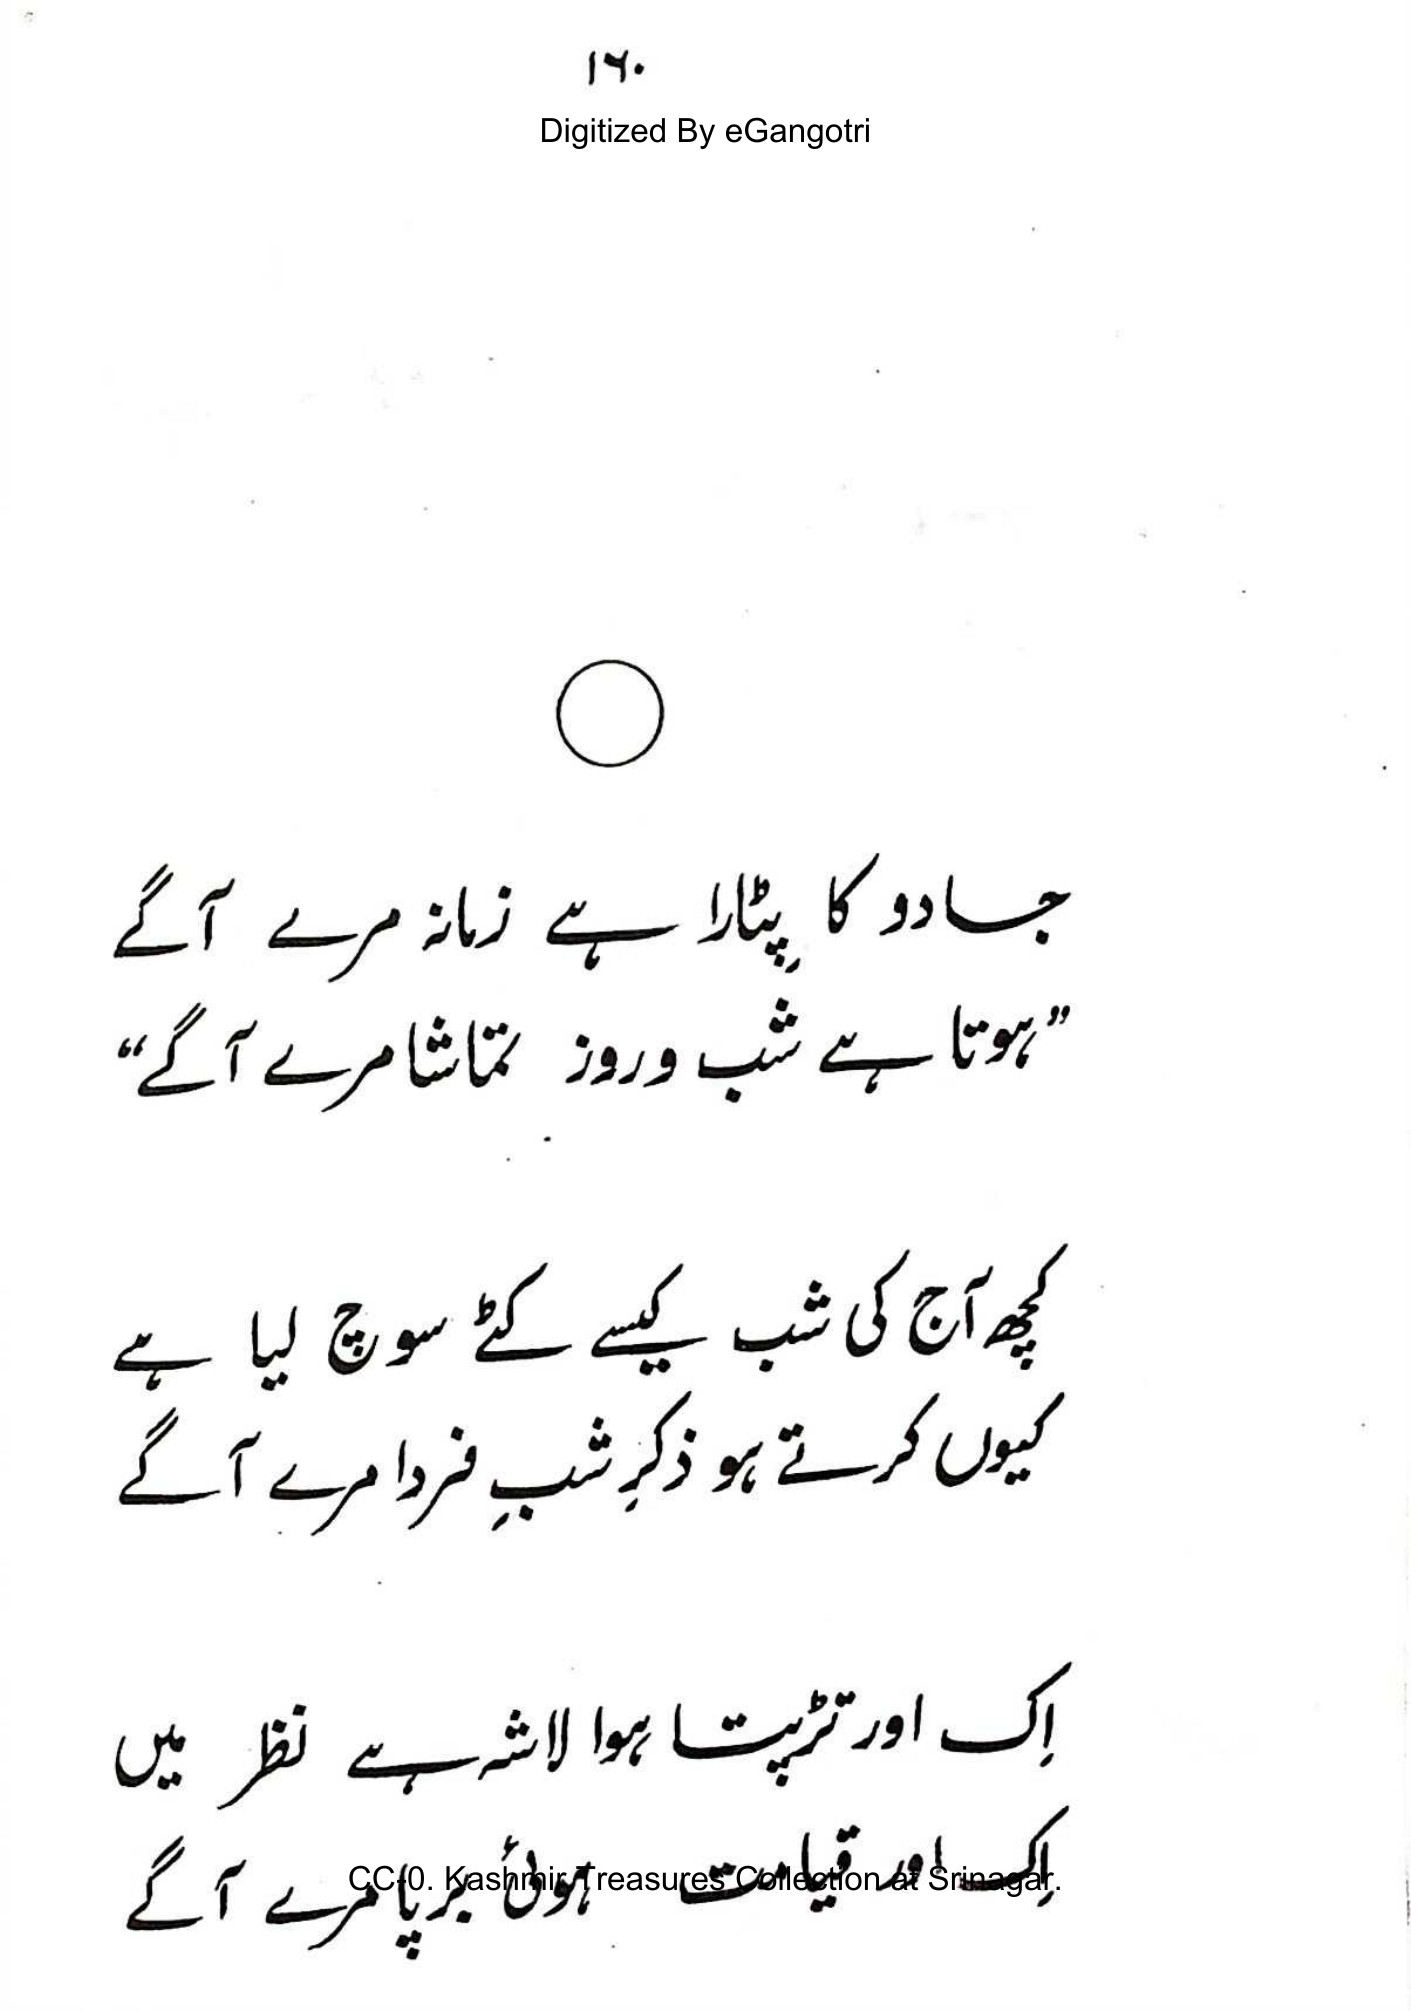 ۱۶۰
Digitized By eGangotri
جادو کا پِٹارا ہے زمانہ مرے آگے
”ہوتا ہے شب و روز تماشا مرے آگے“
کچھ آج کی شب کیسے کٹے سوچ لیا ہے
کیوں کرتے ہو ذکرِ شبِ فردا مرے آگے
اِک اور تڑپتا ہوا لاشہ ہے نظر میں
اِک اور قیامت ہوئی برپا مرے آگے
CC-0. Kashmir Treasures Collection at Srinagar.